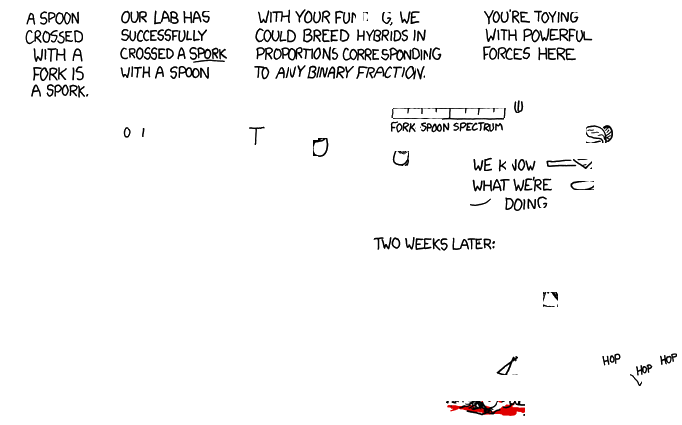 A SPOON
CROSSED
WITH A
FORK IS
A SPORK.
OUR LAB HAS
SUCCESSFULLY
CROSSED A SPORK
WITH A SPOON
WITH YOUR WE
COULD BREED HYBRIDS IN
PROPORTIONS CORRESPONDING
TO ANY BINARY FRACTION.
YOU'RE TOYING
WITH POWERFUL
FORCES HERE
FORK SPOON SPECTRUM
WE
WHAT WE'RE
DOING
TWO WEEKS LATER:
HOP
HOP
HOP